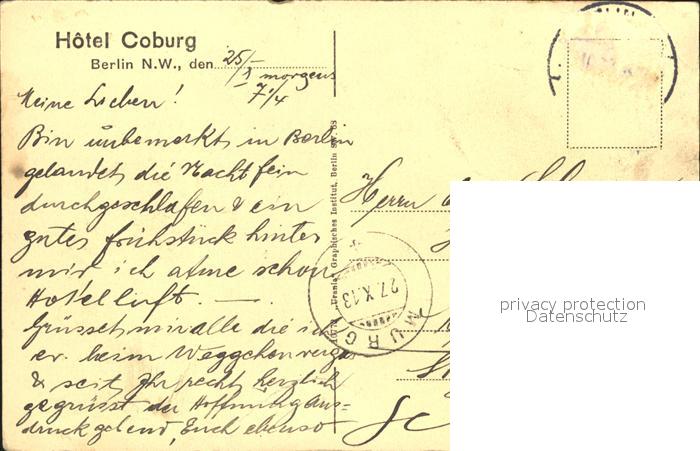 Hôtel Coburg
Berlin N.W., den 25/X morgens
7 1/4
Meine Lieben!
Bin unbemerkt in Berlin
gelandet, die Nacht fein
durchgeschlafen & ein
gutes Frühstück hinter
mir, ich atme schon
Hotelluft. —
Grüsset mir alle die ich
ev. beim Weggehen
& seit Ihr recht herzlich
gegrüsst der Hoffnung Aus=
druck gebend, Euch ebenso
Uranie, Graphisches Institut, Berlin SW. 68
Herrn
27.X.13
MURG
privacy protection
Datenschutz